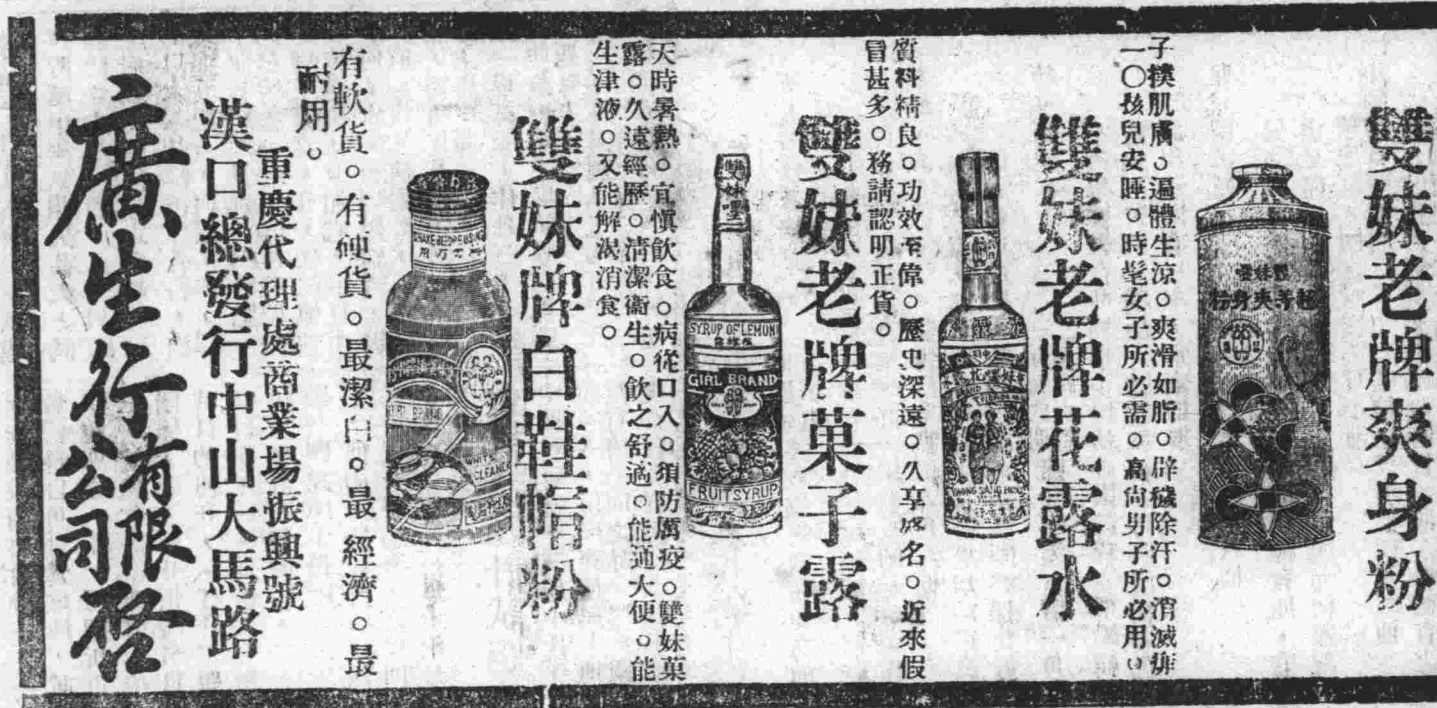 雙妹老牌爽身粉
雙妹嚜
超等爽身粉
子撲肌膚。遍體生凉。爽滑如脂。辟穢除汗。消滅痱
一〇孩兒安睡。時髦女子所必需。高尙男子所必用。
雙妹老牌花露水
質料精良。功效至偉。歷史深遠。久享盛名。近來假
冒甚多。務請認明正貨。
雙妹老牌菓子露
雙妹嚜
SYRUP OF LEMON
GIRL BRAND
FRUIT SYRUP
天時暑熱。宜愼飲食。病從口入。須防厲疫。雙妹菓
露。久遠經歷。淸潔衞生。飲之舒適。能通大便。能
生津液。又能解渴消食。
雙妹牌白鞋帽粉
SHAKE BEFORE USING
WHITE
CLEANER
有軟貨。有硬貨。最潔白。最經濟。最
耐用。
重慶代理處商業場振興號
漢口總發行中山大馬路
廣生行有限公司啓